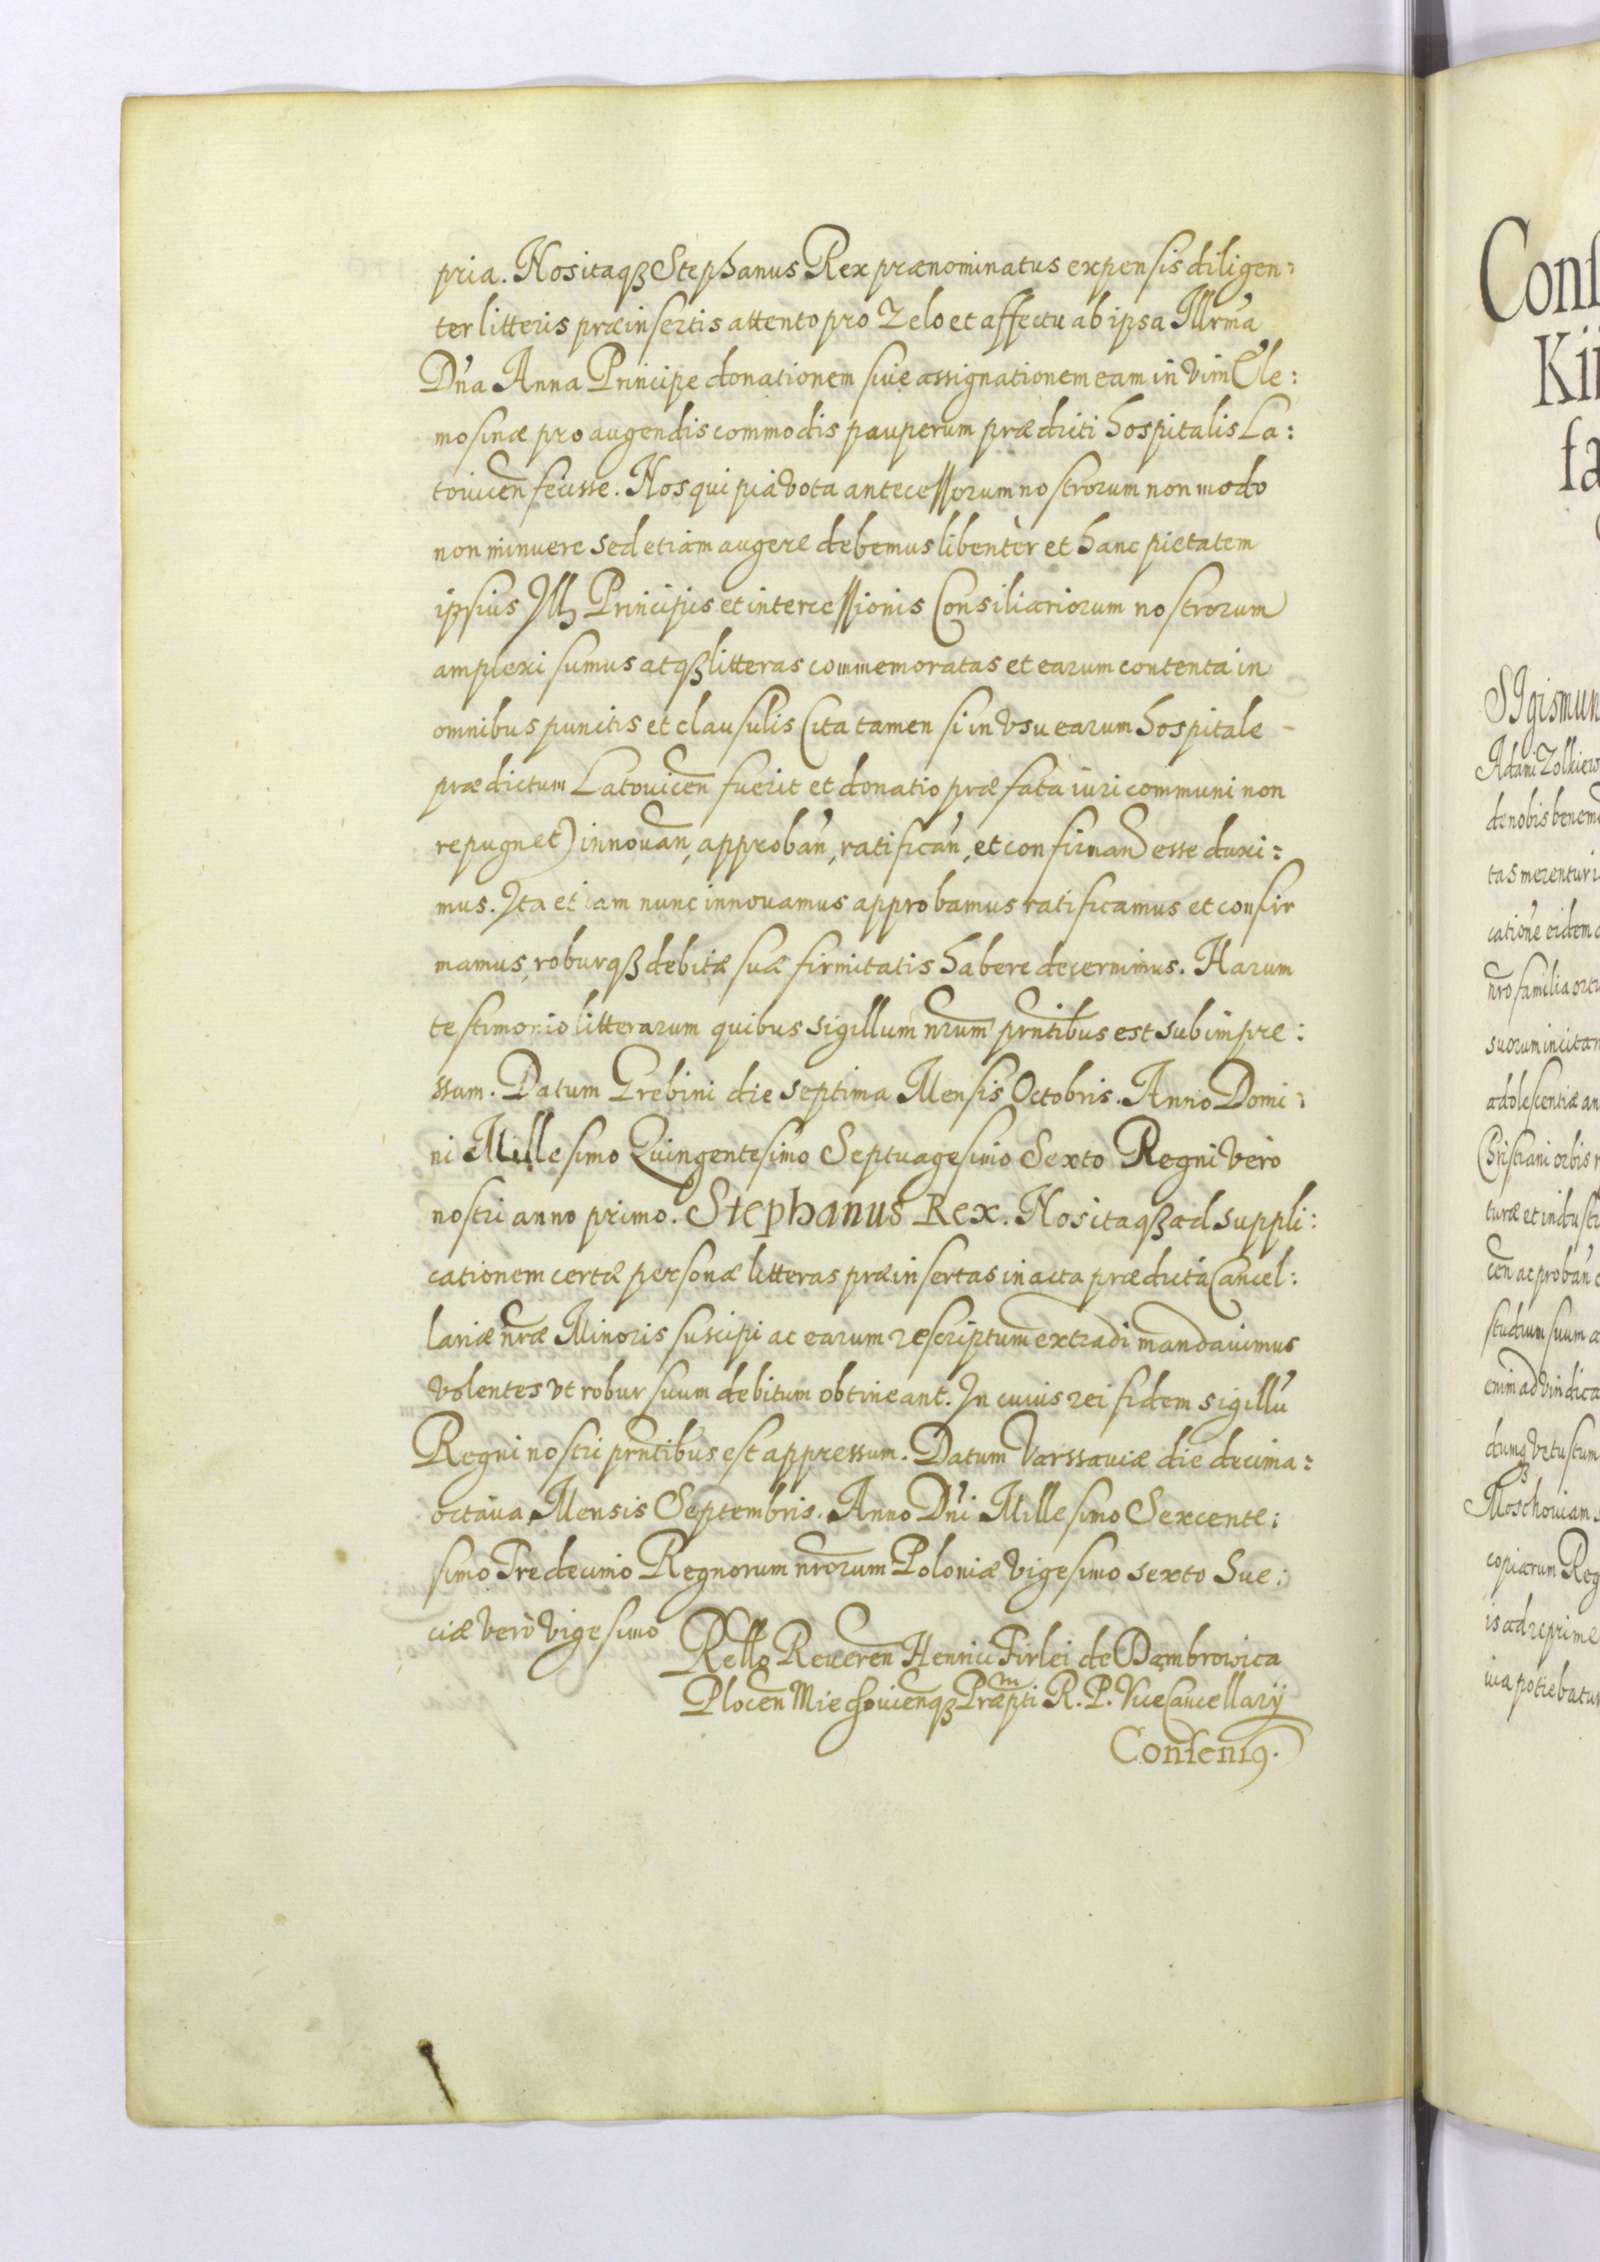 pria. Nos itaqꝫ Stephanus Rex prænominatus expensis diligen:
ter litteris præinsertis attento pro Zelo et affectu ab ipsa Illrma
Dna Anna Principe donationem siue assignationem eam in vim Ele:
mosinæ pro augendis commodis pauperum prædicti hospitalis La:
touicen fecisse. Nos qui pia vota antecessorum nostrorum non modo
non minuere sed etiam augere debemus libenter et hanc pietatem
ipsius Ill Principis et intercessionis Consiliariorum nostrorum
amplexi sumus atqꝫ litteras commemoratas et earum contenta in
omnibus punctis et clausulis (ita tamen si in vsu earum hospitale
prædictum Latouicen fuerit et donatio præfata iuri communi non
repugnet) innouan, approban, ratifican, et confirmand esse duxi:
mus. Ita et iam nunc innouamus approbamus ratificamus et confir
mamus, roburqꝫ debitæ suæ firmitatis habere decernimus. Harum
testimonio litterarum quibus sigillum nrum prntibus est subimpre:
ssum. Datum Grebini die septima Mensis Octobris. Anno Domi:
ni Millesimo Quingentesimo Septuagesimo Sexto Regni vero
nostri anno primo. Stephanus Rex. Nos itaqꝫ ad suppli:
cationem certæ personæ litteras præinsertas in acta prædicta Cancel:
lariæ nræ Minoris suscipi ac earum rescriptum extradi mandauimus
volentes vt robur suum debitum obtineant. In cuius rei fidem sigillu
Regni nostri prntibus est appressum. Datum Varssauiæ die decima:
octaua Mensis Septembris. Anno Dni Millesimo Sexcente:
simo Tredecimo Regnorum nrorum Poloniæ vigesimo sexto Sue:
ciæ vero vigesimo
Rello Reueren Henrici Firlei de Dambrowica
Plocen Miechouicenqꝫ Præpti R. P. ViceCancellarij
Conf
Kii
fa
SIgismun
Adami Zolkiew
de nobis benem
tas merentur i
catione eidem
nro familia ortu
suorum incitam
adolescentiæ an
Christiani orbis
turæ et industr
cen ac proban
studium suum a
enim ad vindica
Moschouiam
copiarum Reg
is ad reprime
uia potiebatur